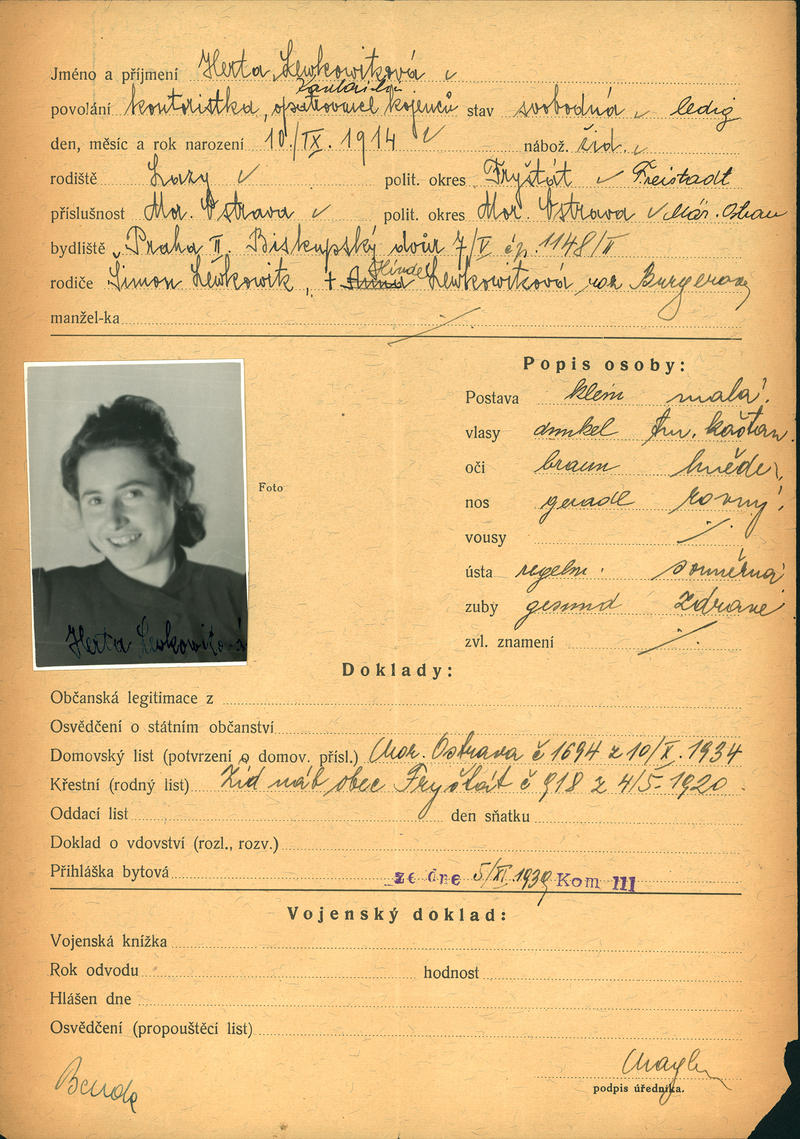 Jméno a příjmení Herta Lewkowitzová
povolání kontoristka, opatrovatel. kojenců stav svobodná ledig
den, měsíc a rok narození 10./IX. 1914 nábož. žid.
rodiště Lazy polit. okres Fryštát Freistadt
příslušnost Mor. Ostrava polit. okres Mor. Ostrava Mär. Ostrau
bydliště Praha II. Biskupský dvůr 7/V čp. 1148/II
Hindel
rodiče Šimon Lewkowitz, + Anna Lewkowitzová roz. Burgerová
manžel-ka
Popis osoby:
Postava klein malá
vlasy dunkel tm. kaštan.
oči braun hnědé
Foto
nos gerade rovný
vousy
ústa regelm. souměrná
zuby gesund zdravé
zvl. znamení
Herta Lewkowitzová
Doklady:
Občanská legitimace z
Osvědčení o státním občanství
Domovský list (potvrzení o domov. přísl.) Mor. Ostrava č 1694 z 10/X. 1934
Křestní (rodný list) Žid náb obec Fryštát č 918 z 4/5-1920
Oddací list den sňatku
Doklad o vdovství (rozl., rozv.)
Přihláška bytová ze dne 5/XI. 1939 Kom III
Vojenský doklad:
Vojenská knížka
Rok odvodu hodnost
Hlášen dne
Osvědčení (propouštěcí list)
Benda
podpis úředníka.